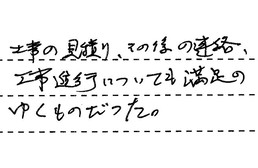 工事の見積り、その後の連絡、
工事進行についても満足の
ゆくものだった。